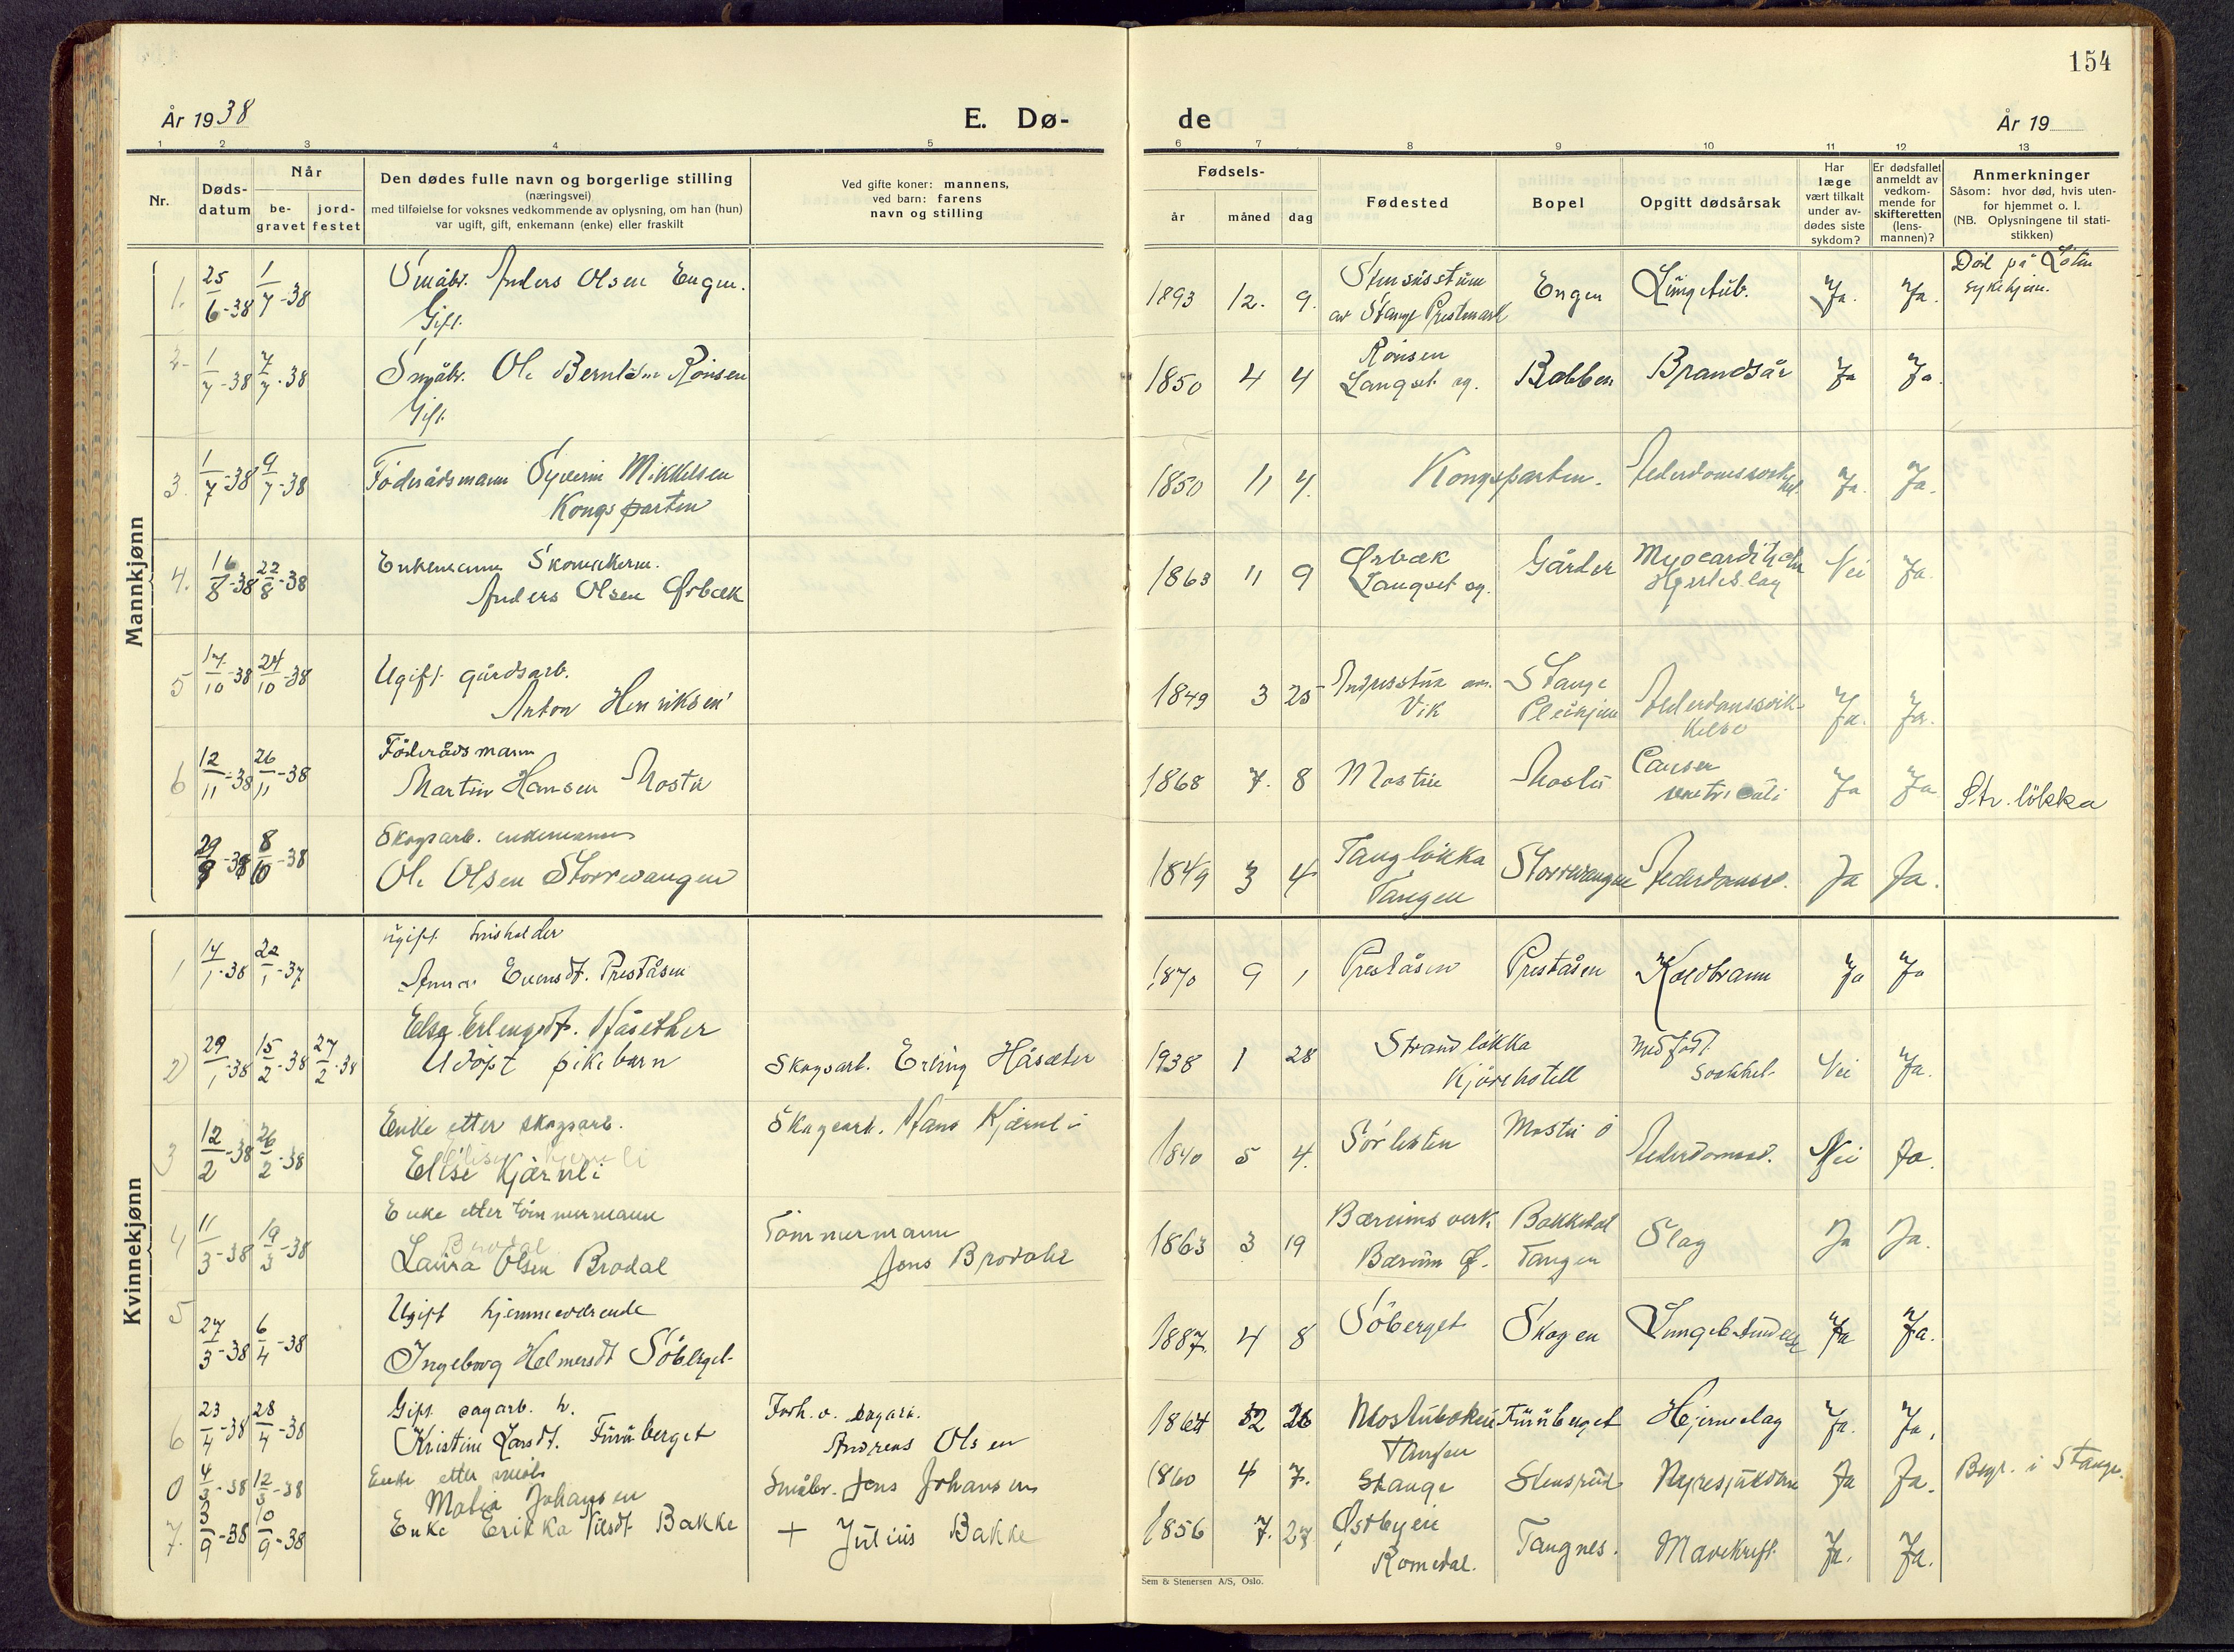 154
År 1938
E. Dø-
de
År 19
1 2 3 4 5 6 7 8 9 10 11 12 13
Nr.
Døds-
datum
Når
be-
gravet
jord-
festet
Den dødes fulle navn og borgerlige stilling
(næringsvei)
med tilføielse for voksnes vedkommende av oplysning, om han (hun)
var ugift, gift, enkemann (enke) eller fraskilt
Ved gifte koner: mannens,
ved barn: farens
navn og stilling
Fødsels-
år
måned
dag
Fødested
Bopel
Opgitt dødsårsak
Har
læge
vært tilkalt
under av-
dødes siste
sykdom?
Er dødsfallet
anmeldt av
vedkom-
mende for
skifteretten
(lens-
mannen)?
Anmerkninger
Såsom: hvor død, hvis uten-
for hjemmet o. l.
(NB. Oplysningene til stati-
stikken)
Mannkjønn
1. 25/6-38 1/7-38 Småbr. Anders Olsen Engen. 1893 12. 9. Engen Lungetub. Ja. Ja. Død på Løten
Gift. av Stange Prestmark sykehjem.
2 1/7-38 7/7-38 Småbr. Ole Berntsen Rönsen 1850 4 4 Rönsen Robben Brandsår Ja Ja.
Gift. Langset og.
3. 1/7-38 9/7-38 Föderådsmann Syverin Mikkelsen 1850 11 4. Kongsparten. Ja. Ja.
Kongsparten
4. 16/8-38 22/8-38 Enkemann Skomakerm. 1863 11 9 Ørbæk Gårder Nei Ja.
Anders Olsen Ørbæk Langset og. Hjerteslag
5 17/10-38 24/10-38 Ugift gårdsarb. 1849 3 25 Stange Alderdomssvik-
Anton Henriksen Vik Pleiehjem kelse Ja. Ja.
6 12/11-38 26/11-38 Föderådsmann 1868 7. 8 Mostu Mostu Cancer Ja Ja Str. lökka
Martin Hansen Mostu ventriculi
29/9-38 8/10-38 Skogsarb. enkemann 1849 3 4 Tanglökka Storrvangen Alderdomss. Ja Ja.
Ole Olsen Storrvangen Tangen
Kvinnekjønn
1 14/1-38 22/1-37 ugift husholder
Anna Evensdt. Preståsen 1870 9 1 Preståsen Preståsen Koldbrann Ja Ja
2 29/1-38 15/2-38 27/2-38 Elsa Erlingsdt. Håsether 1938 1 28 Strandlökka Medfödt Nei Ja.
Udöpt pikebarn Skogsarb. Erling Håsæter Kjörkstell svakhet
3 12/2-38 26/2-38 Enke etter skogsarb. Skogsarb. Hans Kjærnli 1840 5 4. Sörlisten Mostu ö Alderdomssv. Nei Ja.
Elise Kjærnli
4 11/3-38 19/3-38 Enke etter tömmermann Tömmermann 1863 3 19 Bærums verk Bakkedal Slag Ja Ja.
Laura Olsen Brodal Jens Brodahl Bærum Tangen
5 27/3-38 6/4-38 Ugift hjemmeværende 1887. 4 8 Söberget Skogen Lungebetendelse Ja Ja.
Ingeborg Helmersdt Söberget
6 23/4-38 28/4-38 Gift sagarb. h. Forh. v. sagarb. 1864 12 26 Furuberget Hjerneslag Ja. Ja.
Kristine Larsdt. Furuberget Andreas Olsen Tangen
0 4/3-38 12/3-38 Enke etter småb. Småbr. Jens Johansen 1860 4 7. Stange Stensrud Nyresykdom Ja Ja. Begr. i Stange.
Malia Johansen
7. 3/9-38 10/9-38 Enke Erikka Nilsdt Bakke + Julius Bakke 1856 7. 27 Østbyeie Tangnes. Mavekreft. Ja. Ja.
Romedal.
Sem & Stenersen A/S, Oslo.